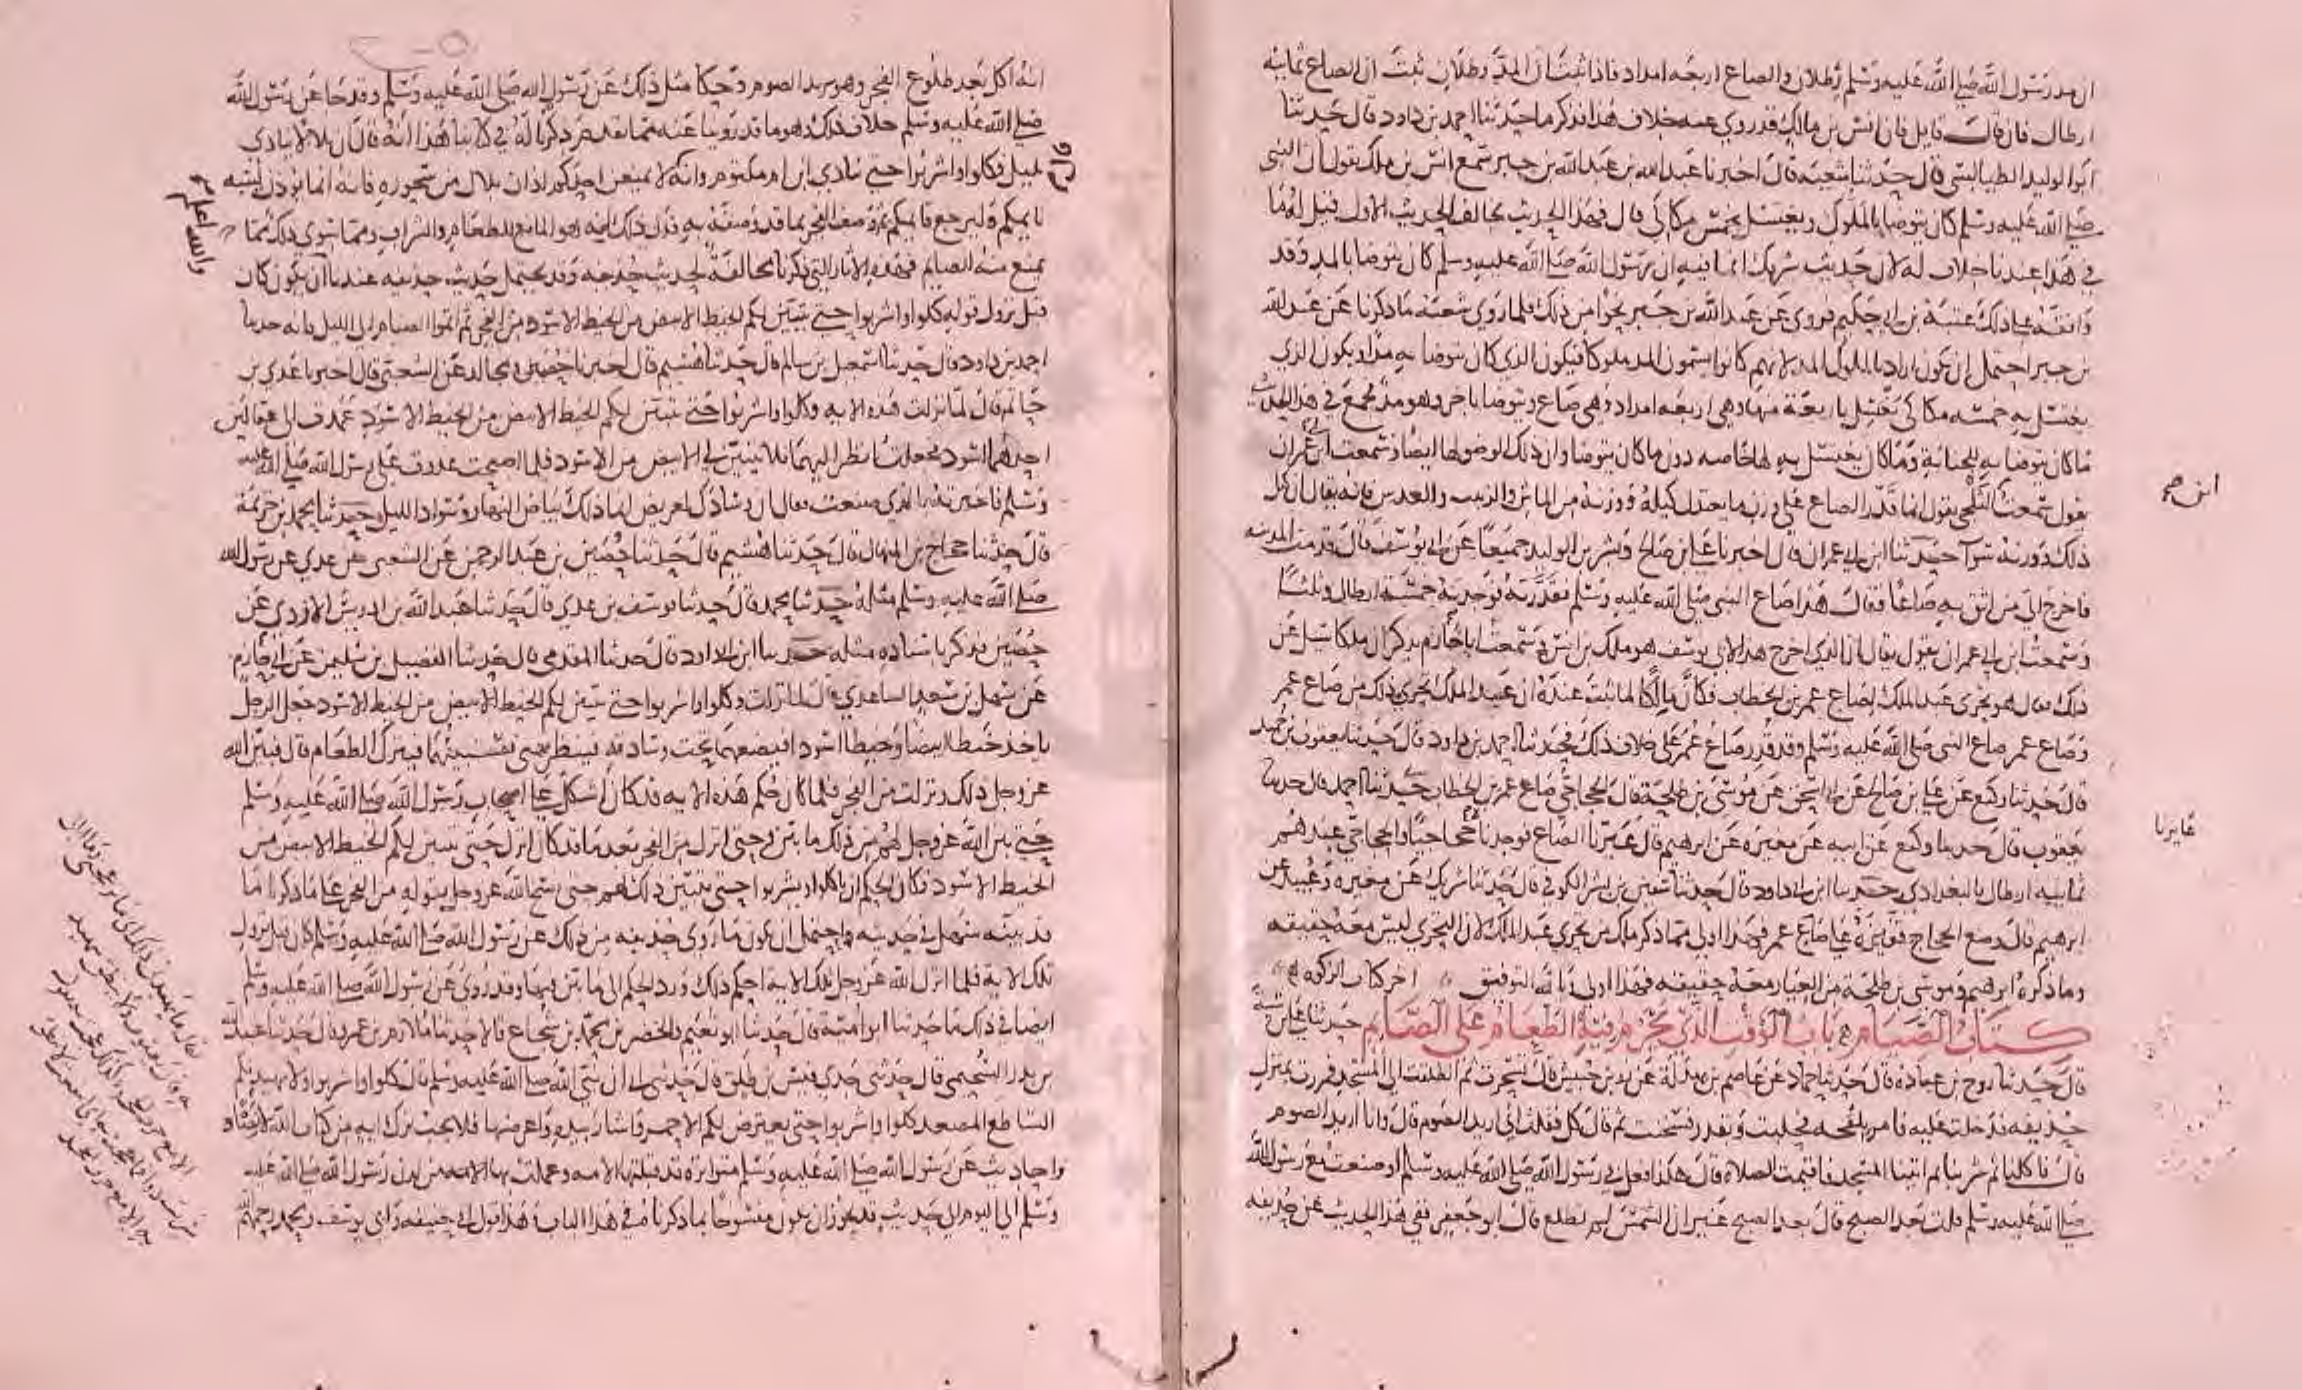 ان مد رسول الله صلى الله عليه وسلم رطلان والصاع اربعه امداد فاذا ثبت ان المد رطلان ثبت ان الصاع ثمانيه
ارطال فان قال قايل فان انس بن مالك قد روي عنه خلاف هذا فذكر ما حدثنا احمد بن داود قال حدثنا
ابوا لوليد الطيالسي قال حدثنا شعبة قال اخبرنا عبد الله بن عبد الله بن جبر سمع انس بن ملك يقول ان النبي
صلى الله عليه وسلم كان يتوضا بالمكوك ويغتسل بخمس مكاكي قال فهذا الحديث يخالف الحديث الاول قيل له ما
في هذا عندنا خلاف له لان حديث شريك انما فيه ان رسول الله صلى الله عليه وسلم كان يتوضا بالمد وقد
وافقه على ذلك عتبة بن ابي حكيم فروي عن عبد الله بن جبر نحوا من ذلك فلما روي شعبة ما ذكرنا عن عبد الله
بن جبر احتمل ان يكون اراد بالمكوك المد لانهم كانوا يسمون المد مكوكا فيكون الذي كان يتوضا به مدا ويكون الذي
يغتسل به خمسه مكاكي يغتسل باربعة منها وهي اربعه امداد وهي صاع ويتوضا باخر وهو مد فجمع في هذا الحديث
ما كان يتوضا به للجنابة وما كان يغتسل به لها خاصه دون ما كان يتوضا وان ذلك لوضوء لها ايضا وسمعت ابن ابي عمران
يقول سمعت الثلجي يقول انما قدر الصاع على وزن ما يعتدل كيله ووزنه من الماش والزبيب والعدس فانه يقال ان كيل
ذلك ووزنه سوآ حدثنا ابن ابي عمران قال اخبرنا علي بن صالح وبشر بن الوليد جميعا عن ابي يوسف قال قدمت المدينه
فاخرج الي من اثق به صاعا فقال هذا صاع النبي صلى الله عليه وسلم فقدرته فوجدته خمسة ارطال وثلثا
وسمعت ابن ابي عمران يقول يقال ان الذي اخرج هذا لابي يوسف هو ملك بن انس وسمعت ابا خازم يذكر ان ملكا سئل عن
ذلك فقال هو تحري عبد الملك لصاع عمر بن الخطاب فكان مالكا لما ثبت عنده ان عبد الملك تحرى ذلك من صاع عمر
وصاع عمر صاع النبي صلى الله عليه وسلم وقد قدر صاع عمر على خلاف ذلك فحدثنا احمد بن داود قال حدثنا يعقوب بن حميد
قال حدثنا وكيع عن علي بن صالح عن ابي اسحق عن موسى بن طلحة قال الحجاجي صاع عمر بن الخطاب حدثنا احمد قال حدثنا
يعقوب قال حدثنا وكيع عن ابيه عن مغيره عن ابرهيم قال عيرنا الصاع فوجدناه حجاجيا والحجاجي عندهم
ثمانيه ارطال بالبغدادي حدثنا ابن ابي داود قال حدثنا سفين بن بشر الكوفي قال حدثنا شريك عن مغيره وعبيده عن
ابرهيم قال وضع الحجاج قفيزه على صاع عمر فهذا اولى مما ذكر ملك من تحري عبد الملك لان التحري ليس معه حقيقه
وما ذكره ابرهيم وموسى بن طلحة من العيار معه حقيقه فهذا اولى وبالله التوفيق اخر كتاب الزكوه
كتاب الصيام باب الوقت الذي يحرم فيه الطعام على الصايم حدثنا علي بن شيبة
قال حدثنا روح بن عبادة قال حدثنا حماد عن عاصم بن بهدلة عن زر بن حبيش قال تسحرت ثم انطلقت الي المسجد فمررت بمنزل
حذيفه فدخلت عليه فامر بلقحه فحلبت وبقدر فسخنت ثم قال كل فقلت اني اريد الصوم قال وانا اريد الصوم
قال فاكلنا ثم شربنا ثم اتينا المسجد فاقيمت الصلاة قال هكذا فعل بي رسول الله صلى الله عليه وسلم او صنعت مع رسول الله
صلى الله عليه وسلم قلت بعد الصبح قال بعد الصبح غير ان الشمس لم تطلع قال ابو جعفر ففي هذا الحديث عن حذيفه
عايرنا
انه اكل بعد طلوع الفجر وهو يريد الصوم وحكا مثل ذلك عن رسول الله صلى الله عليه وسلم وقد جا عن رسول الله
صلى الله عليه وسلم خلاف ذلك وهو ما قد روينا عنه مما تقدم ذكرنا له في كتابنا هذا انه قال ان بلالا ينادي
بليل فكلوا واشربوا حتى ينادي ابن ام مكتوم وانه لا يمنعن احدكم اذان بلال من سحوره فانه انما يوذن لينبه
نايمكم وليرجع قايمكم ثم وصف الفجر بما قد وصفه به فدل ذلك انه هو المانع للطعام والشراب وما سوى ذلك مما
يمنع منه الصايم فهذه الاثار التي ذكرنا مخالفة لحديث حذيفه وقد يحتمل حديث حذيفه عندنا ان يكون كان
قبل نزول قوله كلوا واشربوا حتى يتبين لكم الخيط الابيض من الخيط الاسود من الفجر ثم اتموا الصيام الى الليل فانه حدثنا
احمد بن داود قال حدثنا اسمعيل بن سالم قال حدثنا هشيم قال اخبرنا حصين ومجالد عن الشعبي قال اخبرنا عدي بن
حاتم قال لما نزلت هذه الايه وكلوا واشربوا حتى يتبين لكم الخيط الابيض من الخيط الاسود عمدت الى عقالين
احدهما اسود فجعلت انظر اليهما فلا يتبين لي الابيض من الاسود فلما اصبحت غدوت على رسول الله صلى الله عليه
وسلم فاخبرته بالذي صنعت فقال ان وسادك لعريض انما ذلك بياض النهار وسواد الليل حدثنا محمد بن خزيمة
قال حدثنا حجاج بن المنهال قال حدثنا هشيم قال حدثنا حصين بن عبد الرحمن عن الشعبي عن عدي عن رسول الله
صلى الله عليه وسلم مثله حدثنا محمد قال حدثنا يوسف بن عدي قال حدثنا عبد الله بن ادريس الاودي عن
حصين فذكر باسناده مثله حدثنا ابن ابي داود قال حدثنا المقدمي قال حدثنا الفضيل بن سليمن عن ابي حازم
عن سهل بن سعد الساعدي قال لما نزلت وكلوا واشربوا حتى يتبين لكم الخيط الابيض من الخيط الاسود جعل الرجل
ياخذ خيطا ابيضا وخيطا اسود فيضعهما تحت وسادته فينظر متى تستبينهما فيترك الطعام قال فبين الله
عز وجل ذلك ونزلت من الفجر فلما كان حكم هذه الايه قد كان اشكل على اصحاب رسول الله صلى الله عليه وسلم
حتى بين الله عز وجل لهم من ذلك ما بين وحتى انزل من الفجر بعد ما قد كان انزل حتى يتبين لكم الخيط الابيض من
الخيط الاسود فكان الحكم ان ياكلوا ويشربوا حتى يتبين ذلك لهم حتى نسخ الله عز وجل بقوله من الفجر على ما ذكرنا ما
قد بينه سهل في حديثه واحتمل ان يكون ما روى حذيفه من ذلك عن رسول الله صلى الله عليه وسلم كان قبل نزول
تلك الاية فلما انزل الله عز وجل تلك الايه احكم ذلك ورد الحكم الى ما بين فيها وقد روي عن رسول الله صلى الله عليه وسلم
ايضا في ذلك ما حدثنا ابو امية قال حدثنا ابو نعيم والخضر بن محمد بن شجاع قالا حدثنا ملازم بن عمرو قال حدثنا عبد الله
بن بدر السحيمي قال حدثني جدي قيس بن طلق قال حدثني ابي ان نبي الله صلى الله عليه وسلم قال كلوا واشربوا ولا يهيدنكم
الساطع المصعد كلوا واشربوا حتى يعترض لكم الاحمر واشار بيده واعرضها فلا يجب ترك ايه من كتاب الله
واحاديث عن رسول الله صلى الله عليه وسلم متواترة قد قبلتها الامه وعملت بها الامه من لدن رسول الله صلى الله عليه
وسلم الى اليوم الى حديث قد يجوز ان يكون منسوخا بما ذكرنا في هذا الباب وهذا قول ابي حنيفه وابي يوسف ومحمد رحمهم الله
والله اعلم